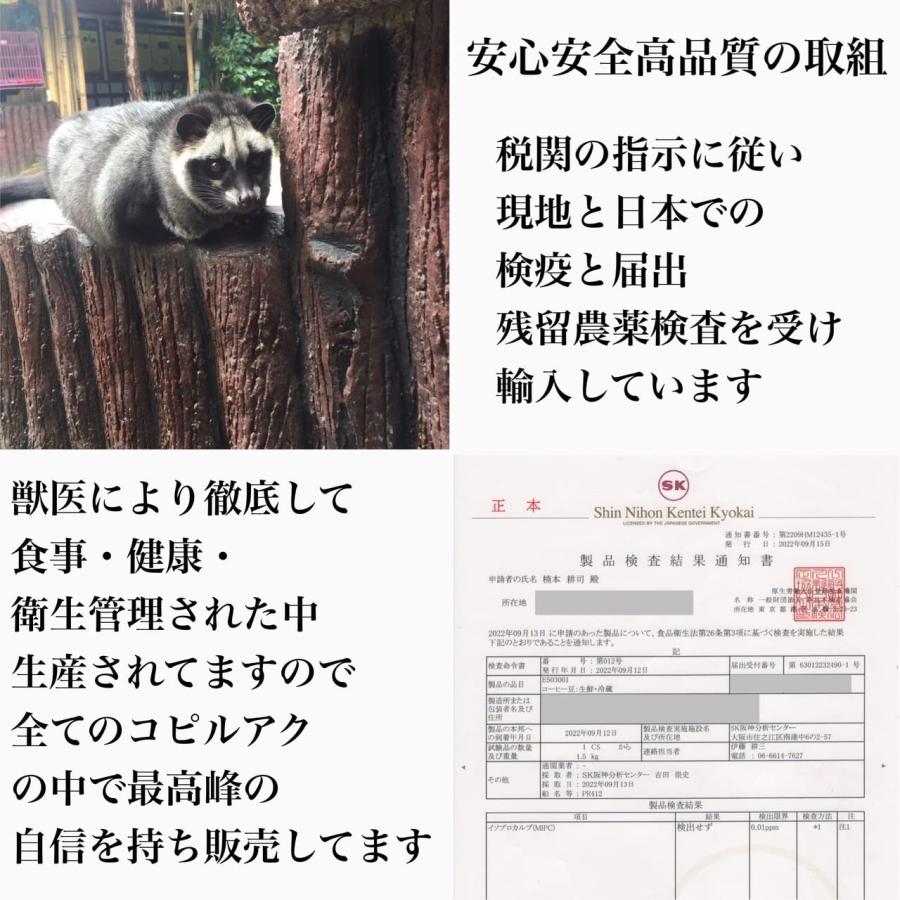 安心安全高品質の取組
税関の指示に従い
現地と日本での
検疫と届出
残留農薬検査を受け
輸入しています
獣医により徹底して
食事・健康・
衛生管理された中
生産されてますので
全てのコピルアク
の中で最高峰の
自信を持ち販売してます
SK
正 本
Shin Nihon Kentei Kyokai
LICENSED BY THE JAPANESE GOVERNMENT
通知書番号：第2209HM12435-1号
発 行 日：2022年09月15日
製品検査結果通知書
申請者の氏名 楠本 耕司 殿
厚生労働大臣登録検査機関
名 称 一般財団法人新日本検定協会
所在地
所在地 東京都港区高輪
2022年09月13日 に申請のあった製品について、食品衛生法第26条第3項に基づく検査を実施した結果
下記のとおりであることを通知します。
記
検査命令書 番 号：第012号 届出受付番号 第 63012232490-1 号
発行年月日：2022年09月12日
製品の品目 E503001
コーヒー豆:生鮮・冷蔵
製造所または
包装者名及び
住所
製品の本邦へ
の到着年月日 2022年09月12日 製品検査実施施設名
及び所在地 SK阪神分析センター
大阪市住之江区南港中6の2-57
試験品の数量
及び重量 1 CS から
1.5 kg 連絡担当者 伊藤 耕三
電話：06-6614-7627
その他 通関業者：-
採 取 者：SK阪神分析センター 吉田 崇史
採 取 日：2022年09月13日
船 名 等：PR412
製品検査結果
項目 結果 検出限界 検査方法 注
イソプロカルブ(MIPC) 検出せず 0.01ppm *1 注1